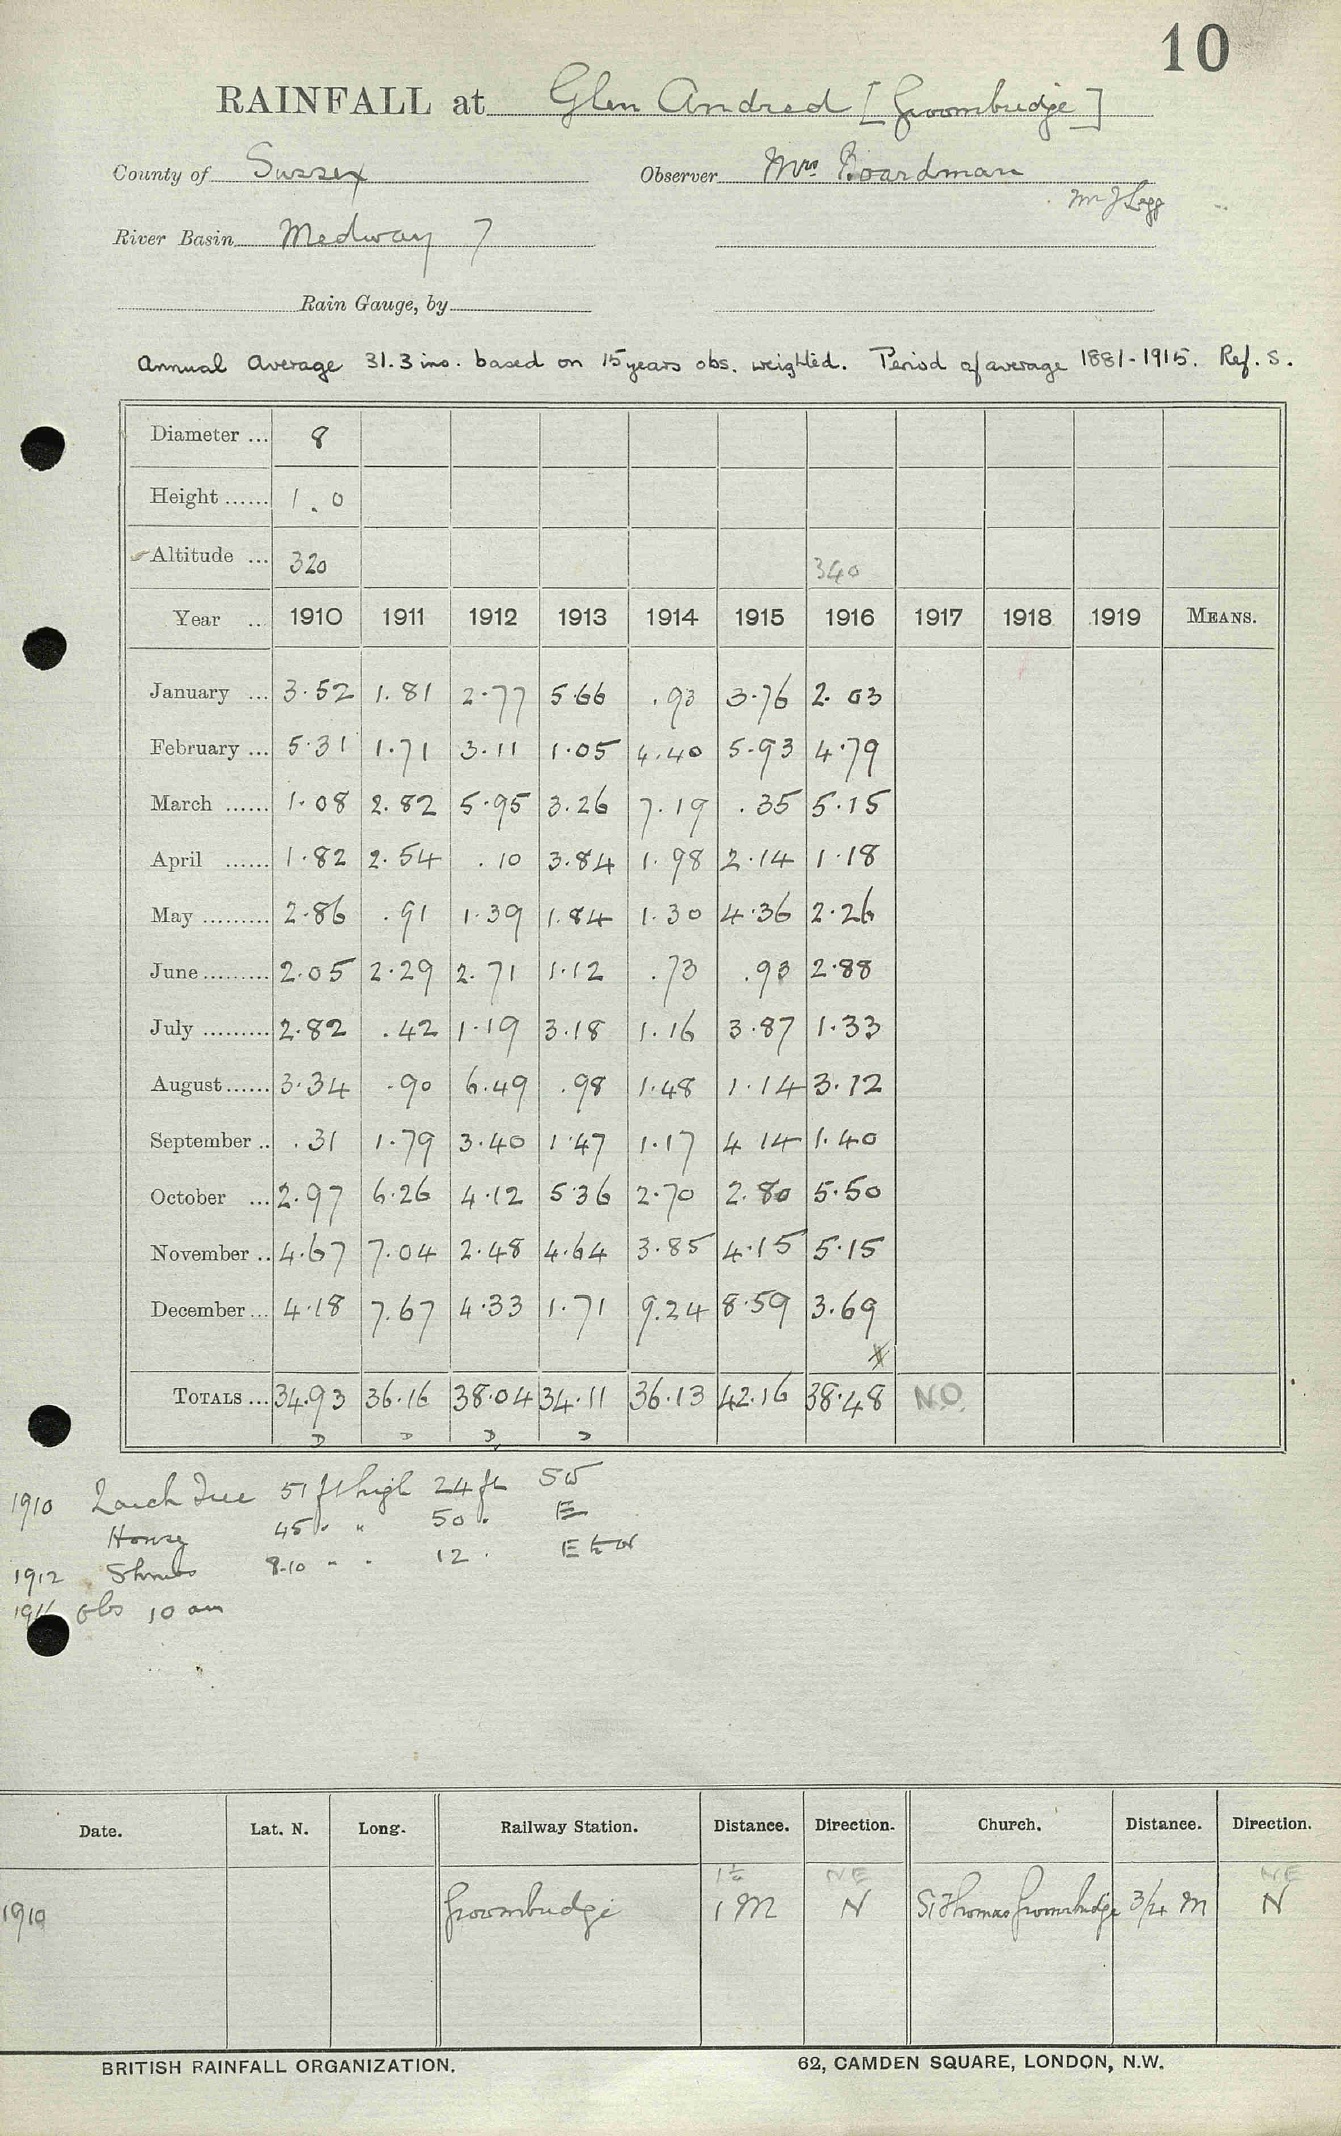 10
RAINFALL at Glen Andred [Groombridge]
County of Sussex Observer Mrs Boardman
Mr J Legg
River Basin Medway 7
Rain Gauge, by
Annual Average 31.3 ins. based on 15 years obs. weighted. Period of average 1881-1915. Ref. S.
Diameter ... 8
Height ...... 1.0
Altitude ... 320 340
Year .. 1910 1911 1912 1913 1914 1915 1916 1917 1918 1919 MEANS.
January ... 3.52 1.81 2.77 5.66 .93 3.76 2.03
February ... 5.31 1.71 3.11 1.05 4.40 5.93 4.79
March ...... 1.08 2.82 5.95 3.26 7.19 .35 5.15
April ...... 1.82 2.54 .10 3.84 1.98 2.14 1.18
May ......... 2.86 .91 1.39 1.84 1.30 4.36 2.26
June ......... 2.05 2.29 2.71 1.12 .73 .93 2.88
July ......... 2.82 .42 1.19 3.18 1.16 3.87 1.33
August ...... 3.34 .90 6.49 .98 1.48 1.14 3.12
September .. .31 1.79 3.40 1.47 1.17 4 14 1.40
October ... 2.97 6.26 4.12 5.36 2.70 2.80 5.50
November .. 4.67 7.04 2.48 4.64 3.85 4.15 5.15
December ... 4.18 7.67 4.33 1.71 9.24 8.59 3.69
TOTALS ... 34.93 36.16 38.04 34.11 36.13 42.16 38.48 N.O.
D D D D
1910 Larch Tree 51 ft high 24 ft SW
House 45 " " 50 " E
1912 Shrubs 8-10 " " 12 " E to W
Obs 10 am
Date. Lat. N. Long. Railway Station. Distance. Direction. Church. Distance. Direction.
1½ NE NE
1910 Groombridge 1 M N St Thomas Groombridge 3/4 M N
BRITISH RAINFALL ORGANIZATION. 62, CAMDEN SQUARE, LONDON, N.W.